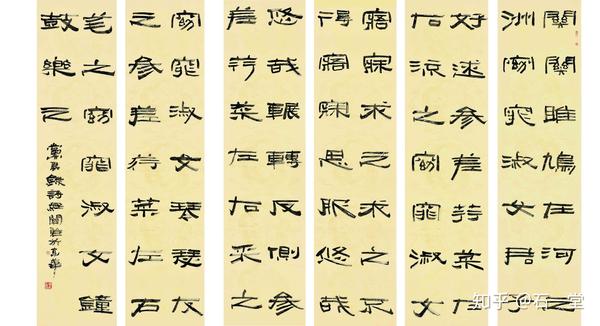 關關雎鳩在河之
洲窈窕淑女君子
好逑參差荇菜左
右流之窈窕淑女
寤寐求之求之不
得寤寐思服悠哉
悠哉輾轉反側參
差荇菜左右采之
窈窕淑女琴瑟友
之參差荇菜左右
芼之窈窕淑女鐘
鼓樂之
錄詩經關雎於京華
知乎 @石一堂